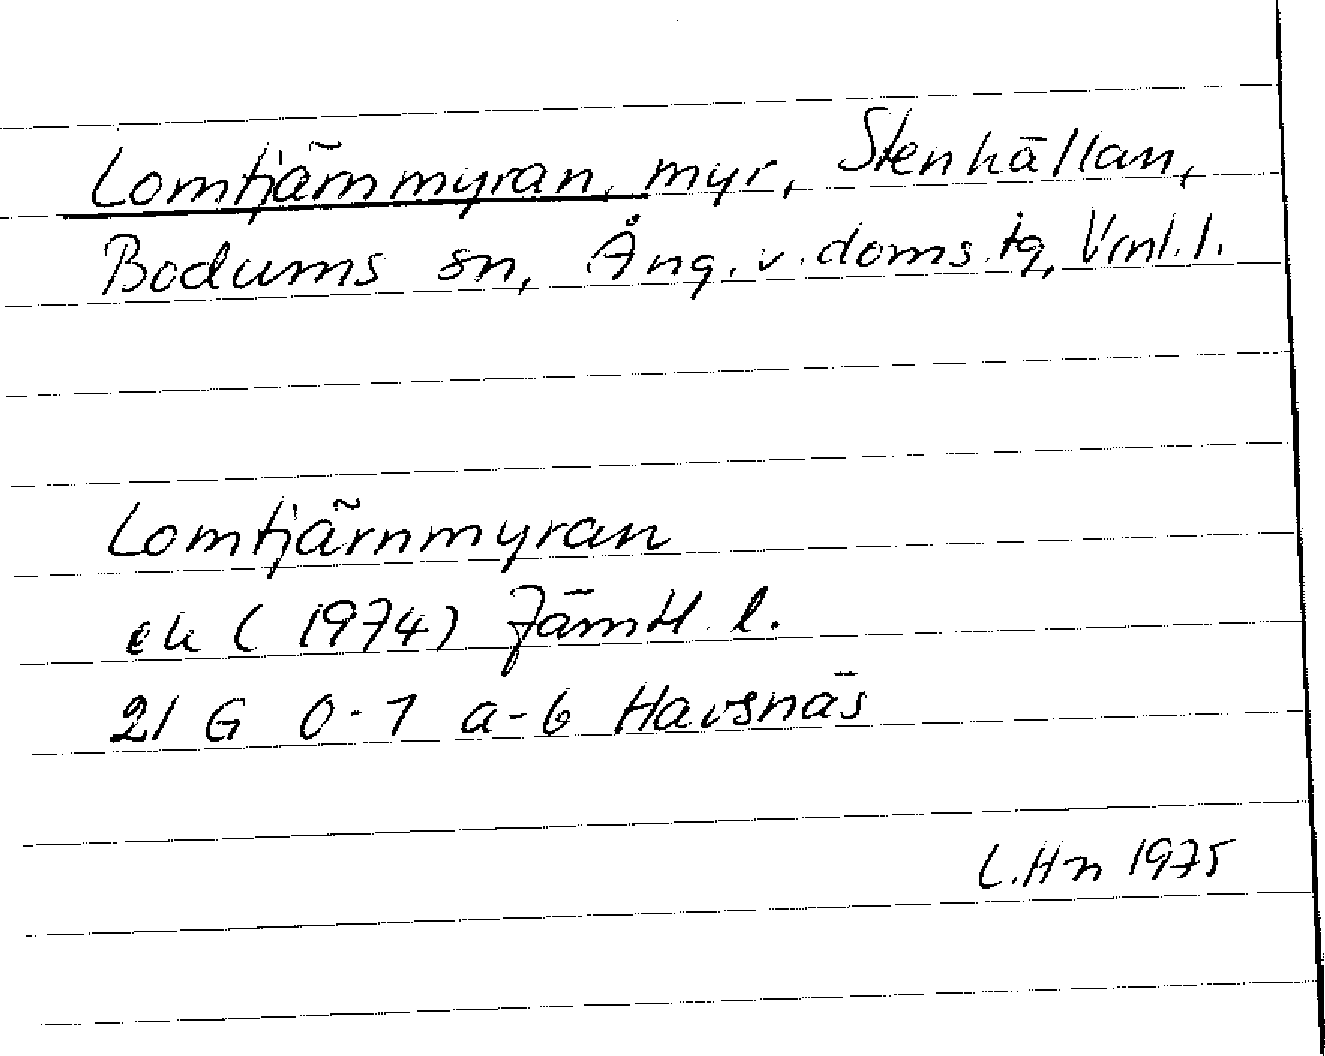 Lomtjärnmyran, myr, Stenhällan,
Bodums sn, Ång. v. doms.tg, Vrnl. l.
Lomtjärnmyran
ek (1974) Jämtl. l.
21 G 0-1 a-b Havsnäs
L.Hn 1975